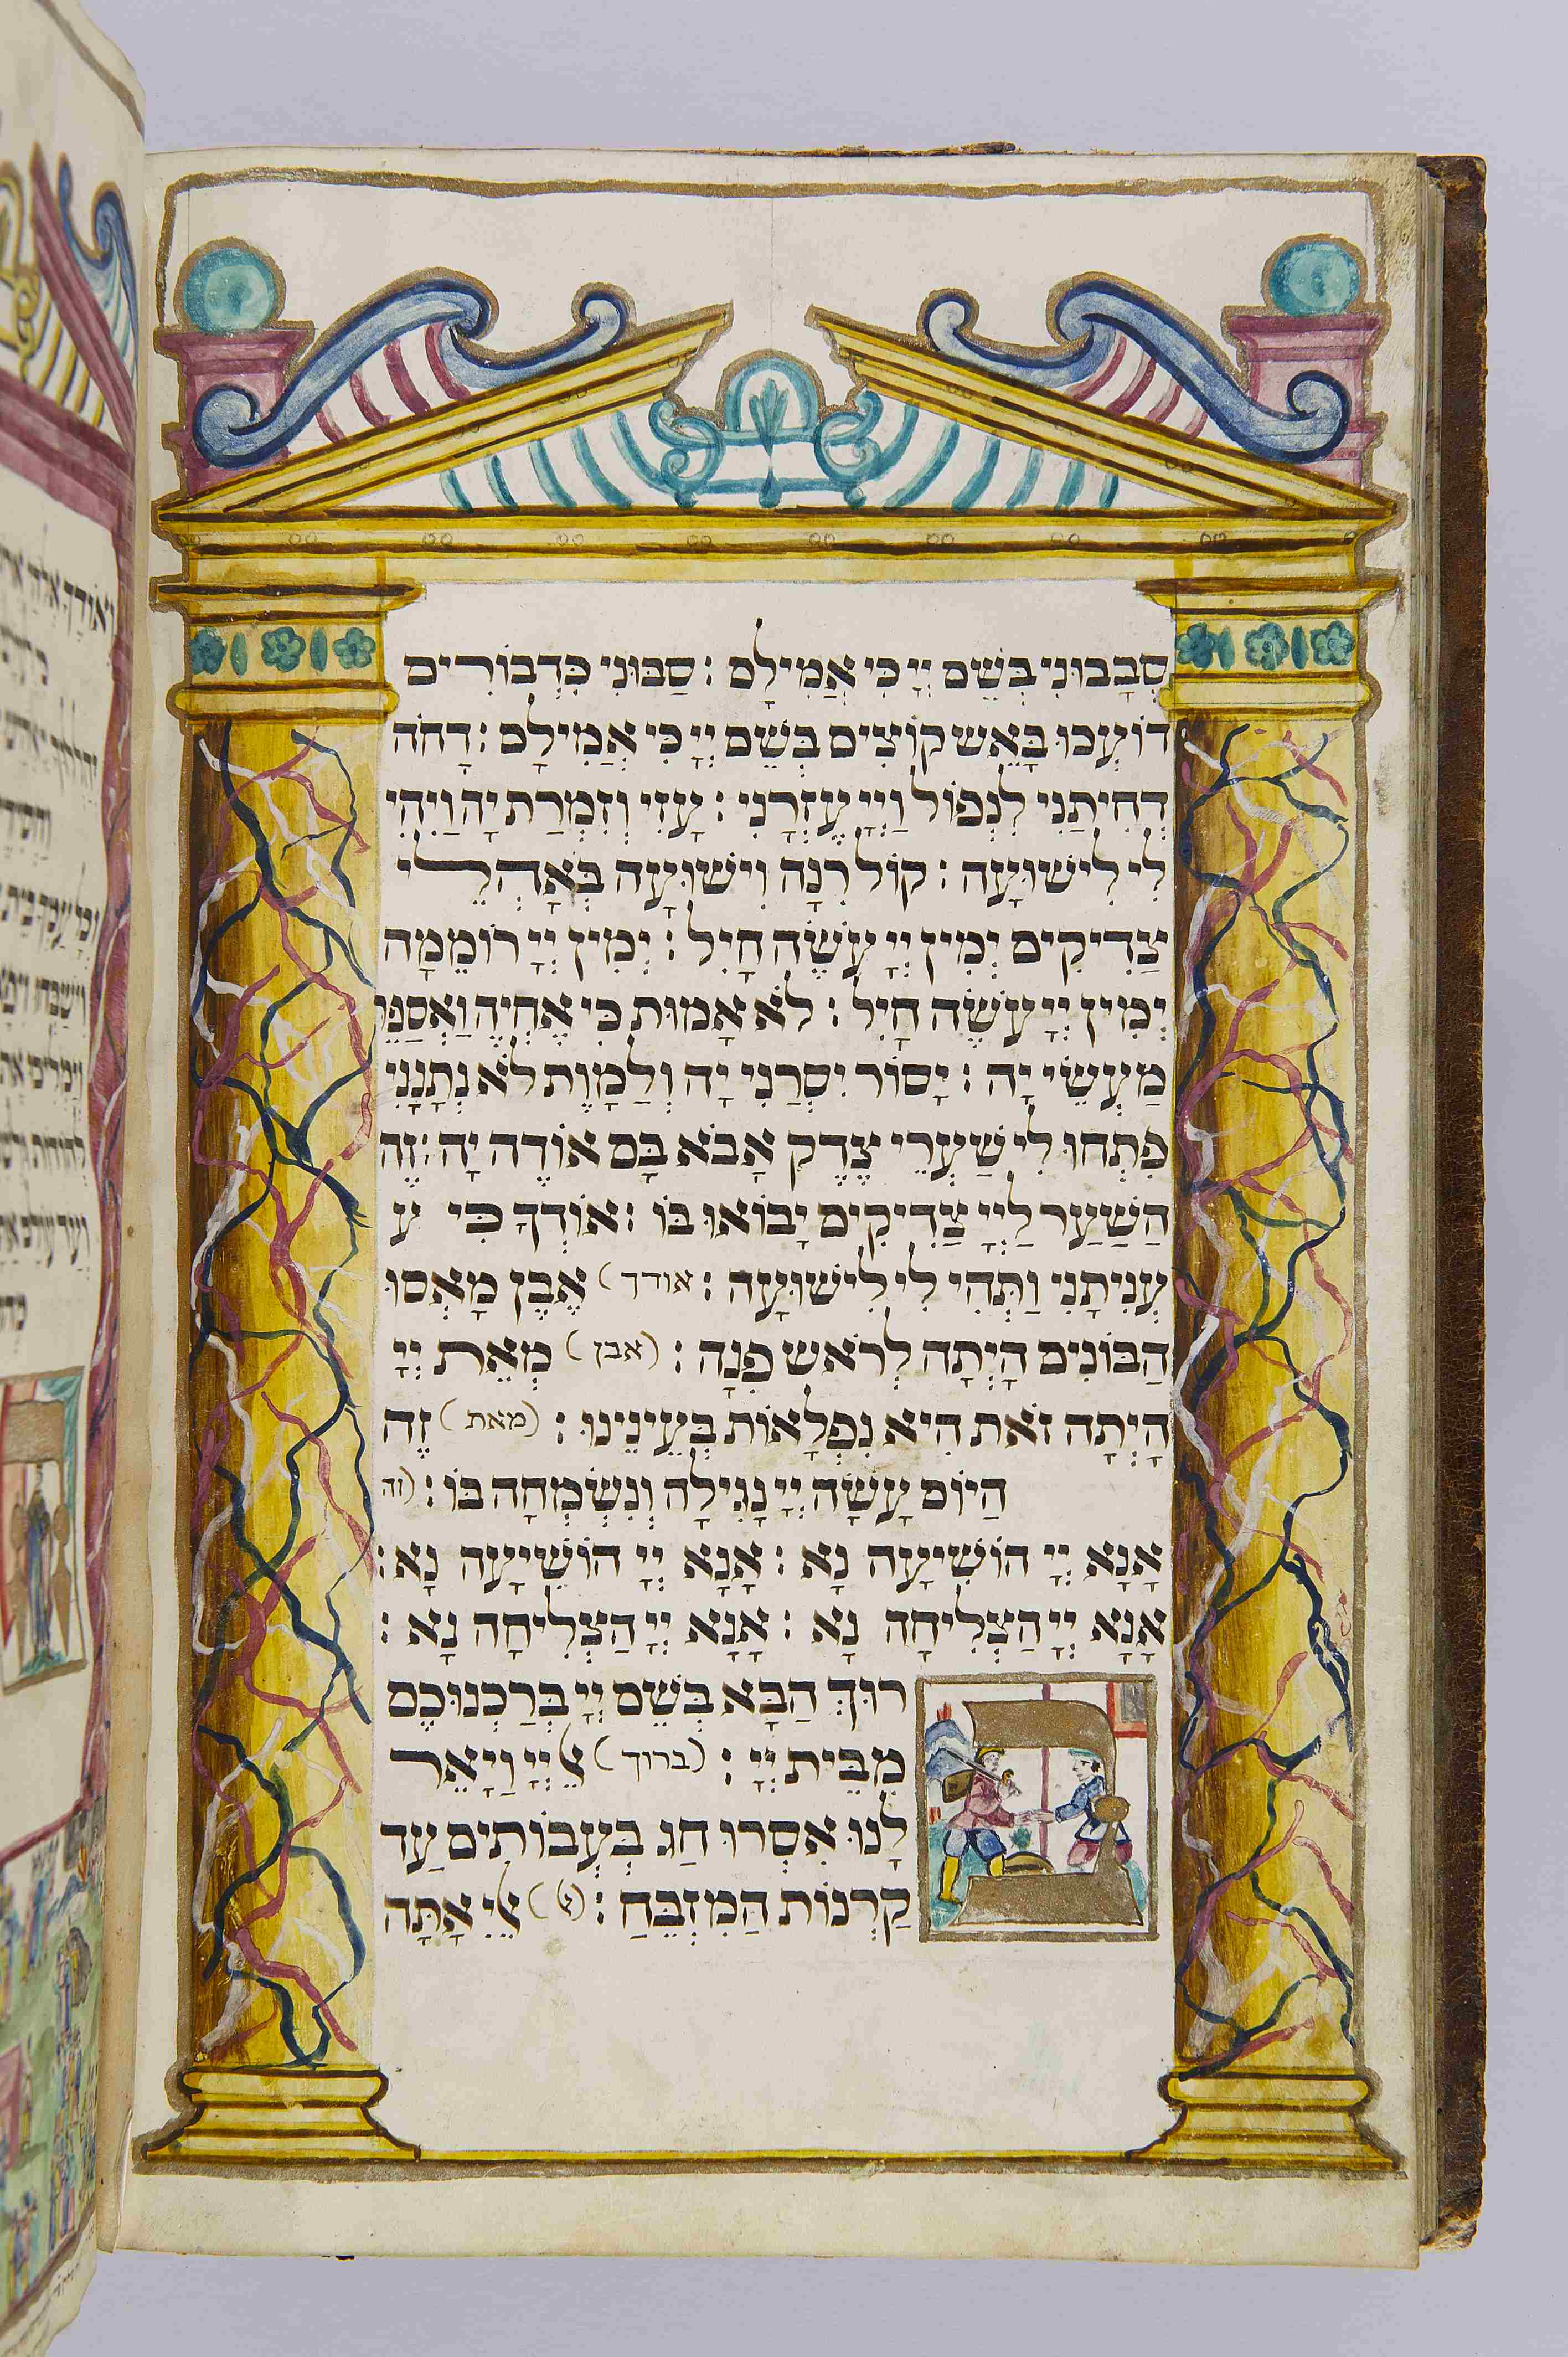 סְבָבוּנִי בְּשֵׁם יְיָ כִּי אֲמִילָם : סַבּוּנִי כִּדְבוֹרִים
דוֹעֲכוּ בָּאֵשׁ קוֹצִים בְּשֵׁם יְיָ כִּי אֲמִילָם : דָחֹה
דְחִיתַנִי לִנְפּוֹל וַיְיָ עֲזָרָנִי : עָזִי וְזִמְרַת יָהּ וַיְהִי
לִי לִישׁוּעָה : קוֹל רִנָּה וִישׁוּעָה בְּאָהֳלֵי
צַדִיקִים יְמִין יְיָ עֹשֶׂה חָיִל : יְמִין יְיָ רוֹמֵמָה
יְמִין יְיָ עֹשֶׂה חָיִל : לֹא אָמוּת כִּי אֶחְיֶה וַאֲסַפֵּר
מַעֲשֵׂי יָהּ : יָסוֹר יִסְרַנִי יָהּ וְלַמָוֶת לֹא נְתָנָנִי
פִּתְחוּ לִי שַׁעֲרֵי צֶדֶק אָבֹא בָּם אוֹדֶה יָהּ : זֶה
הַשַׁעַר לַיְיָ צַדִיקִים יָבוֹאוּ בוֹ : אוֹדְךָ כִּי ע
עֲנִיתָנִי וַתְּהִי לִי לִישׁוּעָה : אודך) אֶבֶן מָאֲסוּ
הַבּוֹנִים הָיְתָה לְרֹאשׁ פִּנָה : (אבן) מֵאֵת יְיָ
הָיְתָה זֹאת הִיא נִפְלָאוֹת בְּעֵינֵינוּ : (מאת) זֶה
הַיוֹם עָשָׂה יְיָ נָגִילָה וְנִשְׂמְחָה בוֹ : (זה
אָנָא יְיָ הוֹשִׁיעָה נָא : אָנָא יְיָ הוֹשִׁיעָה נָא :
אָנָא יְיָ הַצְלִיחָה נָא : אָנָא יְיָ הַצְלִיחָה נָא :
רוּךְ הַבָּא בְּשֵׁם יְיָ בֵּרַכְנוּכֶם
מִבֵּית יְיָ : (ברוך) אֵל יְיָ וַיָאֶר
לָנוּ אִסְרוּ חַג בְּעֲבוֹתִים עַד
קַרְנוֹת הַמִזְבֵּחַ : (אל) אֵלִי אַתָּה